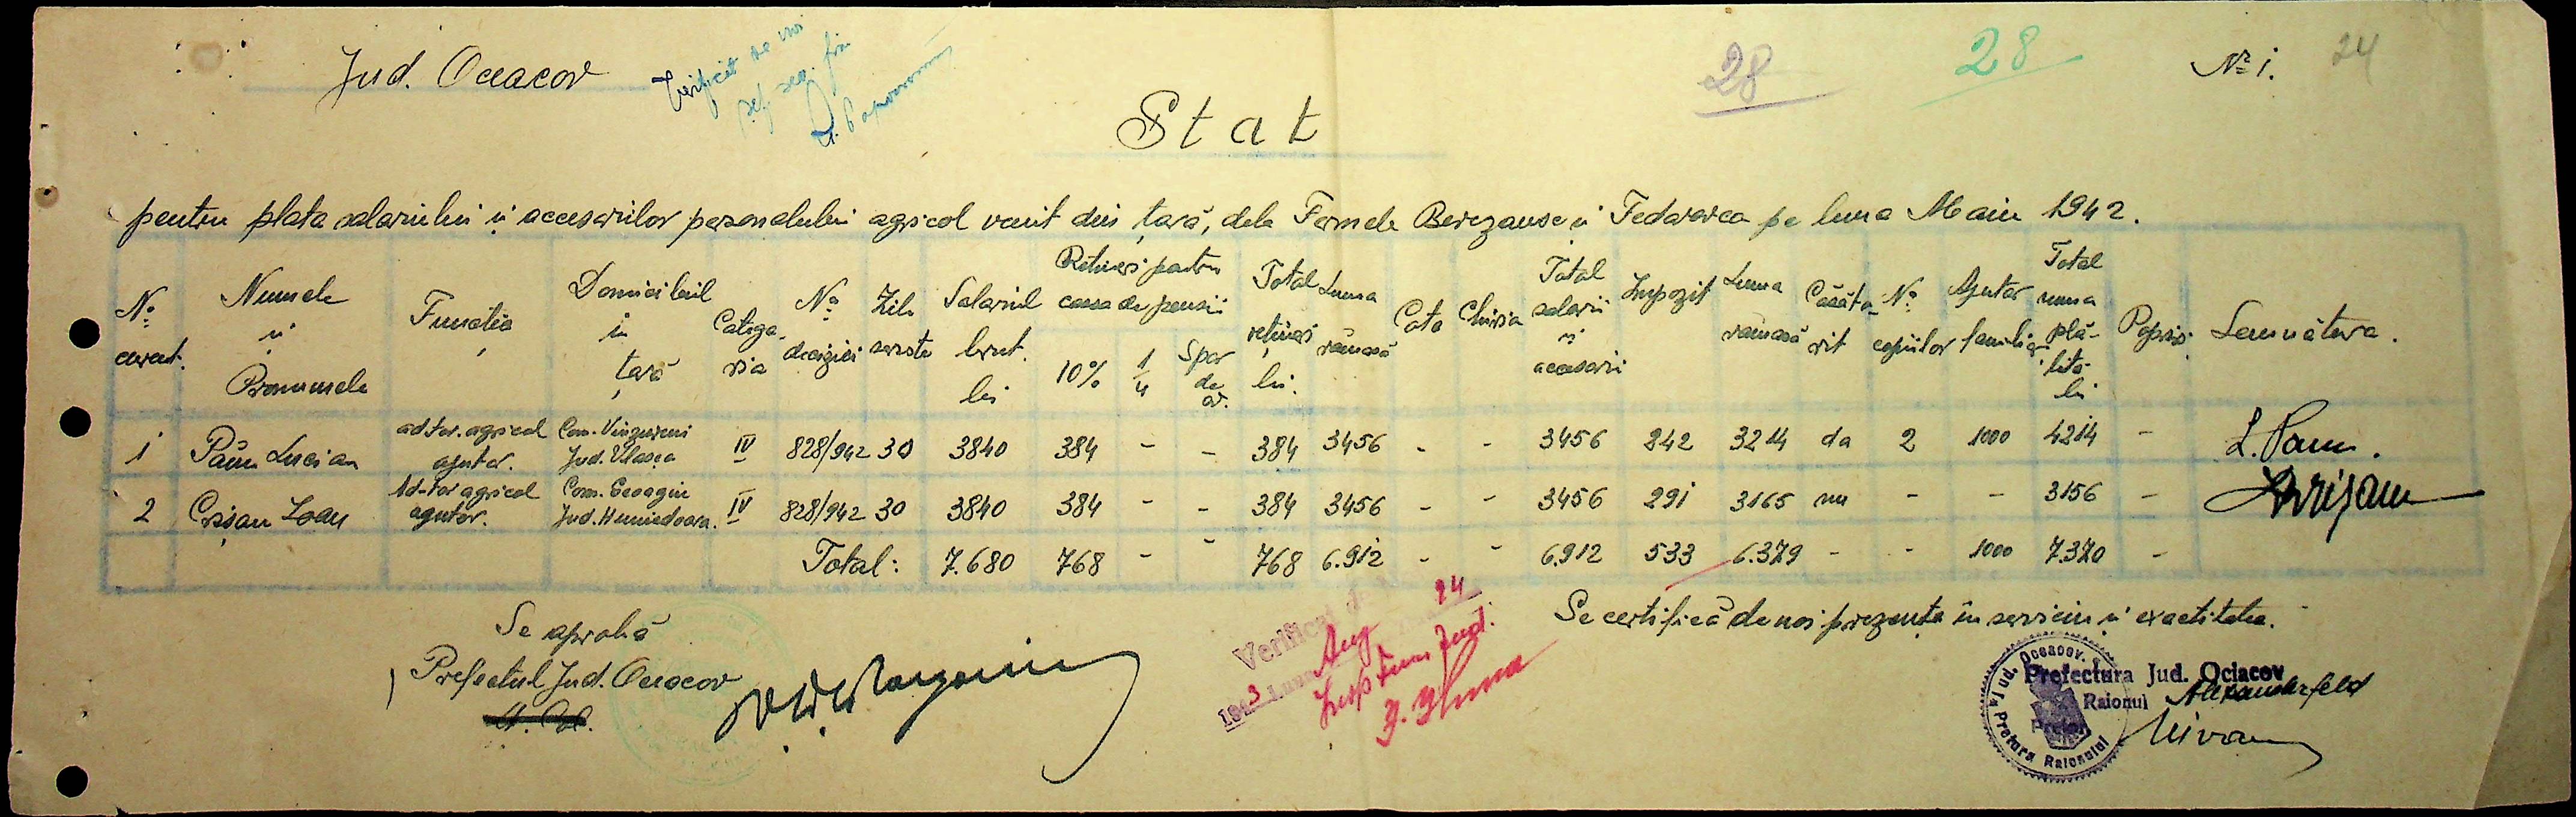 Jud. Oceacov
Verificat de noi
șef. seg. fin
28
28
Nº 1.
24
Stat
pentru plata salariului și accesoriilor personalului agricol venit din țară, dela Fermele Berezanse și Fedarovca pe luna Maiu 1942.
Nº curent. Numele și Pronumele Funcția Domiciliul in țară Categoria Nº deciziei Zile servite Salariul brut. lei Rețineri pentru casa de pensii 10% 1/4 Spor de av. Total rețineri lei. Suma rămasă Cota Chiria Total salarii și accesorii Impozit Suma rămasă Căsătorit Nº copiilor Ajutor familiar Total suma plătită lei Popriri Semnătura.
1 Păun Lucian ad-tor. agricol ajutor. Com. Vînzureni Jud. Vlașca IV 828/942 30 3840 384 - - 384 3456 - - 3456 242 3214 da 2 1000 4214 - L. Paun.
2 Crișan Ioan Ad-tor agricol ajutor. Com. Geoagiu Jud. Hunedoara. IV 828/942 30 3840 384 - - 384 3456 - - 3456 291 3165 nu - - 3156 - Crișan
Total: 7.680 768 - - 768 6.912 - - 6.912 533 6.379 - - 1000 7.370 -
Se aprobă
Prefectul Jud. Oceacov
Verificat
24
1943 luna Aug
Insp fin Jud.
Se certifică de noi prezența în serviciu și exactitatea.
Jud. Oceacov. Pretura Raionului
Prefectura Jud. Ociacov
Raionul Alexanderfeld
Pretor